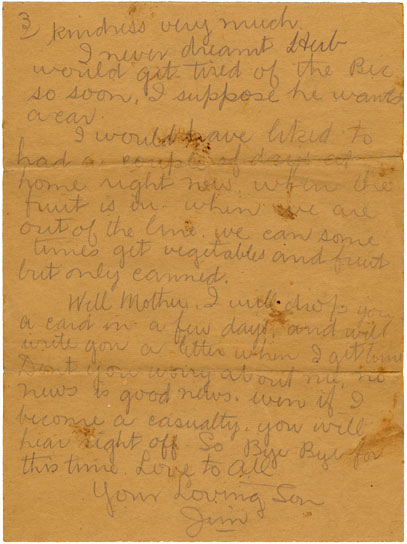 3
kindness very much.
I never dreamt Herb
would get tired of the Bec
so soon, I suppose he wants
a car.
I would have liked to
had a couple of days at
home right now, when the
fruit is in. when we are
out of the line. we can some
times get vegetables and fruit
but only canned.
Well Mother, I will drop you
a card in a few days, and will
write you a letter when I get time
Dont you worry about me, no
news is good news. even if I
become a casualty. you will
hear right off So Bye Bye for
this time. Love to all
Your Loving Son
Jim